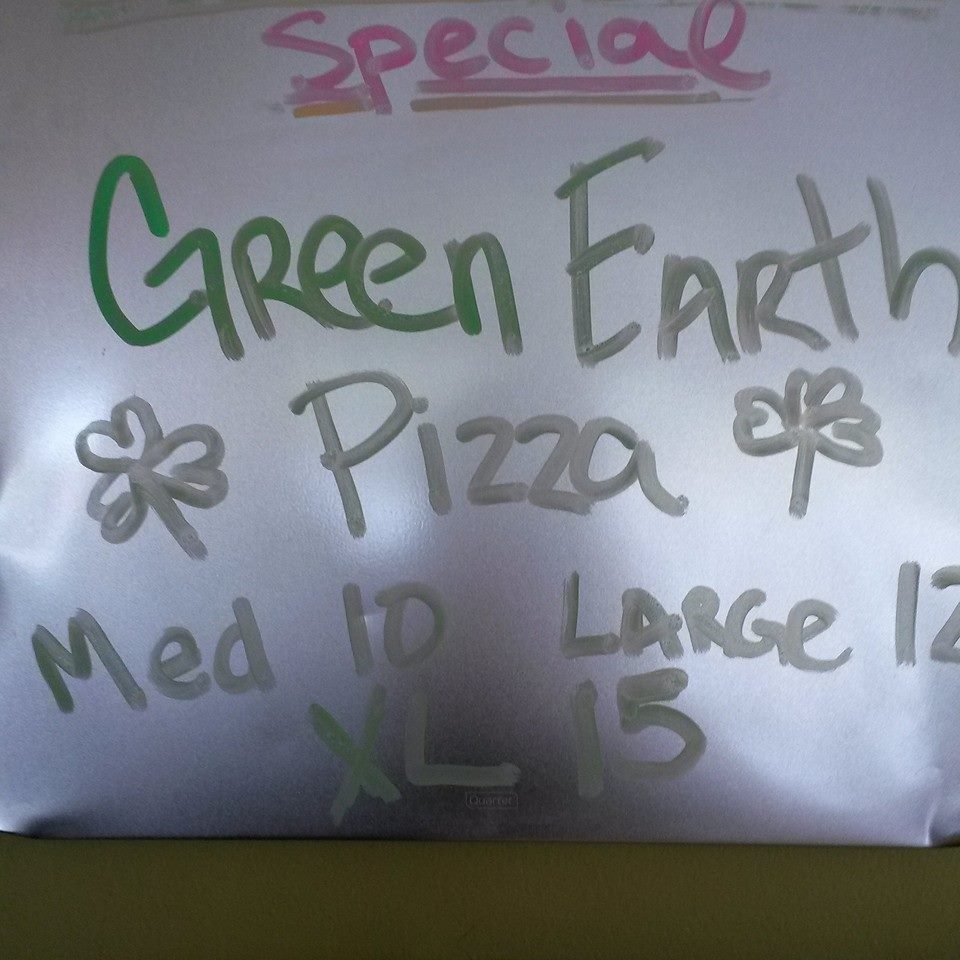 Special
Green Earth
Pizza
Med 10 LARGe 12
XL 15
Quartet